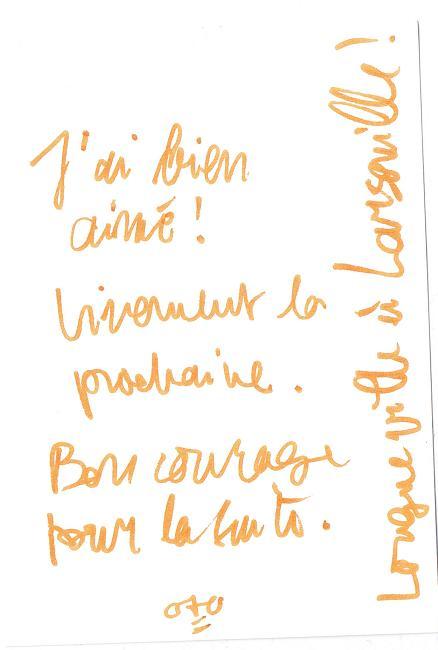 J'ai bien
aimé !
Vivement la
prochaine.
Bon courage
pour la suite.
oto
Longue vie à Larsonville !